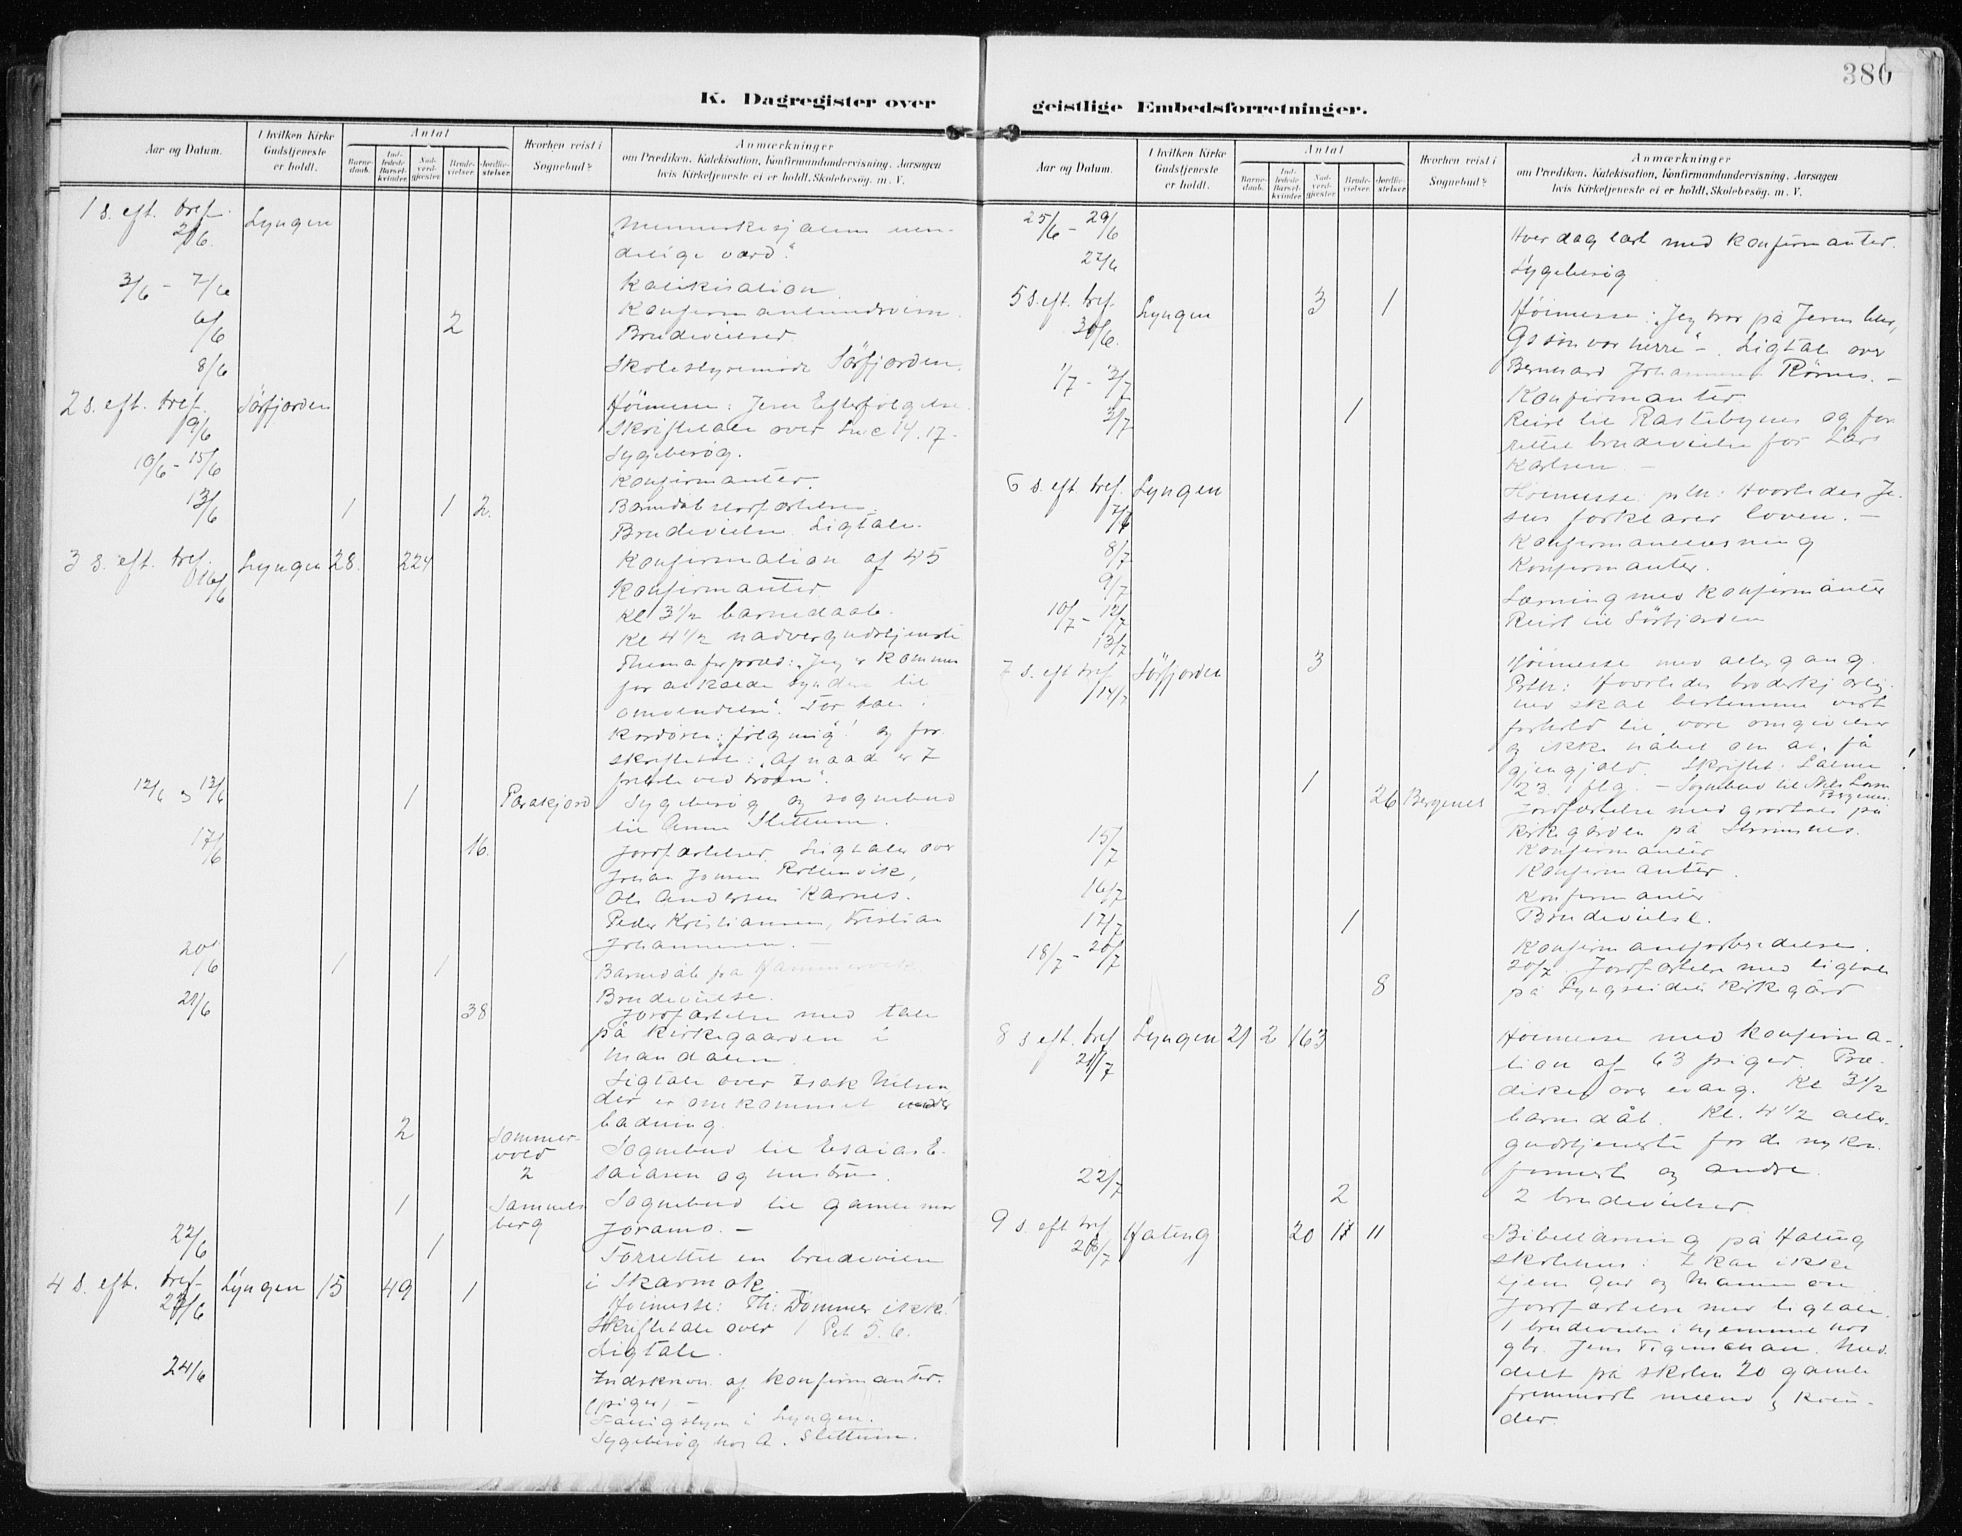 380
K. Dagregister over geistlige Embedsforretninger.
Aar og Datum.
I hvilken Kirke Gudstjeneste er holdt.
Antal
Barnedaab.
Indledede Barselkvinder
Nadverdgjæster
Brudevielser.
Jordfæstelser.
Hvorhen reist i Sognebud?
Anmærkninger
om Prædiken, Katekisation, Konfirmandundervisning, Aarsagen
hvis Kirketjeneste ei er holdt, Skolebesøg. m. V.
1 s. eft. tref. Lyngen
2/6. "Menneskesjælens uen-
delige værd."
3/6 - 7/6 Katekisation
Konfirmantundervisn.
6/6 2 Brudevielser.
8/6 Skolestyremøde Sørfjorden.
2 s. eft. tref. Sørfjorden Høimesse: Jesu Efterfølgelse.
9/6 Skriftetale over Luc 14. 17-
Sygebesøg.
10/6 - 15/6 Konfirmanter.
13/6 1 1 2. Barnedåb Jordfæstelser
Brudevielse Ligtale.
3 s. eft. tref. Lyngen 28. 224 Konfirmation af 45
16/6 Konfirmanter.
Kl 3 1/2 barnedaab.
Kl 4 1/2 nadvergudstjeneste
Thema for præd: "Jeg er kommen
for at kalde syndere til
omvendelse".
kordøren: "følg mig"! og for
skriftetale: "Af naade er I
frelste ved troen".
12/6 og 13/6 1 Sygebesøg og sognebud
til Anna Slettum.
17/6 16. Jordfæstelser. Ligtaler over
Johan Jonsen
Ole Andersen Karnes.
Peder Kristiansen, Kristian
Johannesen. -
20/6 1 1 Barnedåb på
Brudevielse.
21/6 38 Jordfæstelse med tale
på kirkegaarden i
Mandalen.
Ligtale over Isak Nilsen
der er omkommet under
badning.
2 Sommer-
vold
2 Sognebud til Esaias E-
saiasen og hustru
1 Sammels
berg Sognebud til gamle mor
Joramo. -
22/6 1 Forrettet en brudevielse
i Skarmok
4 s. eft. tref. Lyngen 15 49 1
23/6 Høimesse: Th: Dømmer ikke!
Skriftetale over 1 Pet 5. 6.
Ligtale.
24/6 Indskrivn. af konfirmanter.
(piger) -
Fattigstyre i Lyngen.
Sygebesøg hos A. Slettum.
Aar og Datum.
I hvilken Kirke Gudstjeneste er holdt.
Antal
Barnedaab.
Indledede Barselkvinder
Nadverdgjæster
Brudevielser.
Jordfæstelser.
Hvorhen reist i Sognebud?
Anmærkninger
om Prædiken, Katekisation, Konfirmandundervisning, Aarsagen
hvis Kirketjeneste ei er holdt, Skolebesøg. m. V.
25/6 - 29/6 Hver dag læst med konfirmanter.
27/6 Sygebesøg
5 s. eft. tref. Lyngen 3 1 Høimesse: "Jeg tror på Jesus
30/6. Gs søn vor herre" -. Ligtale over
Bernhard Johannesen Rørnes. -
1/7 - 3/7 Konfirmanter
3/7 1 Reist til Rastebynes og for
rettet brudevielse for Lars
Karlsen. -
6 s. eft. tref. Lyngen Høimesse: prtn: Hvorledes Je-
7/7 sus forklarer loven. -
8/7 Konfirmantlæsning
9/7 Konfirmanter.
10/7 - 12/7 Læsning med konfirmanter
13/7 Reist til Sørfjorden
7 s. eft tref Sørfjorden 3 Høimesse med altergang.
14/7 Prtn: Hvorledes broderkjærlig-
hed skal bestemme vort
forhold til vore omgivelser
og ikke håbet om at få
gjengjæld. Skriftet: Salme
1 Bergenes 23. 1 flg. - Sognebud til Nils Larsen
Bergenes.
26 Jordfæstelse med gravtale på
kirkegården på
15/7 Konfirmanter
Konfirmanter.
16/7 Konfirmanter
17/7 1 Brudevielse.
18/7 - 20/7 Konfirmantforberedelse.
8 20/7 Jordfæstelse med ligtale
på Lyngseidets kirkegård
8 s eft. tref Lyngen 21 2 163 Høimesse med konfirma-
21/7 tion af 63 piger. Præ-
diken over evang. Kl 3 1/2
barnedåb. Kl. 4 1/2 alter-
gudstjeneste for de nykon-
firmert og andre.
22/7 2 2 brudevielser
9 s. eft tref Hateng 20 1 11 Bibellæsning på Hateng
28/7 skolehus: I kan ikke
tjene Gud og Mammon
Jordfæstelse med ligtale.
1 brudevielse i hjemmet hos
gbr. Jens Figenschau. Med-
delt på skolen 20 gamle
fremmødt mænd og kvin-
der.